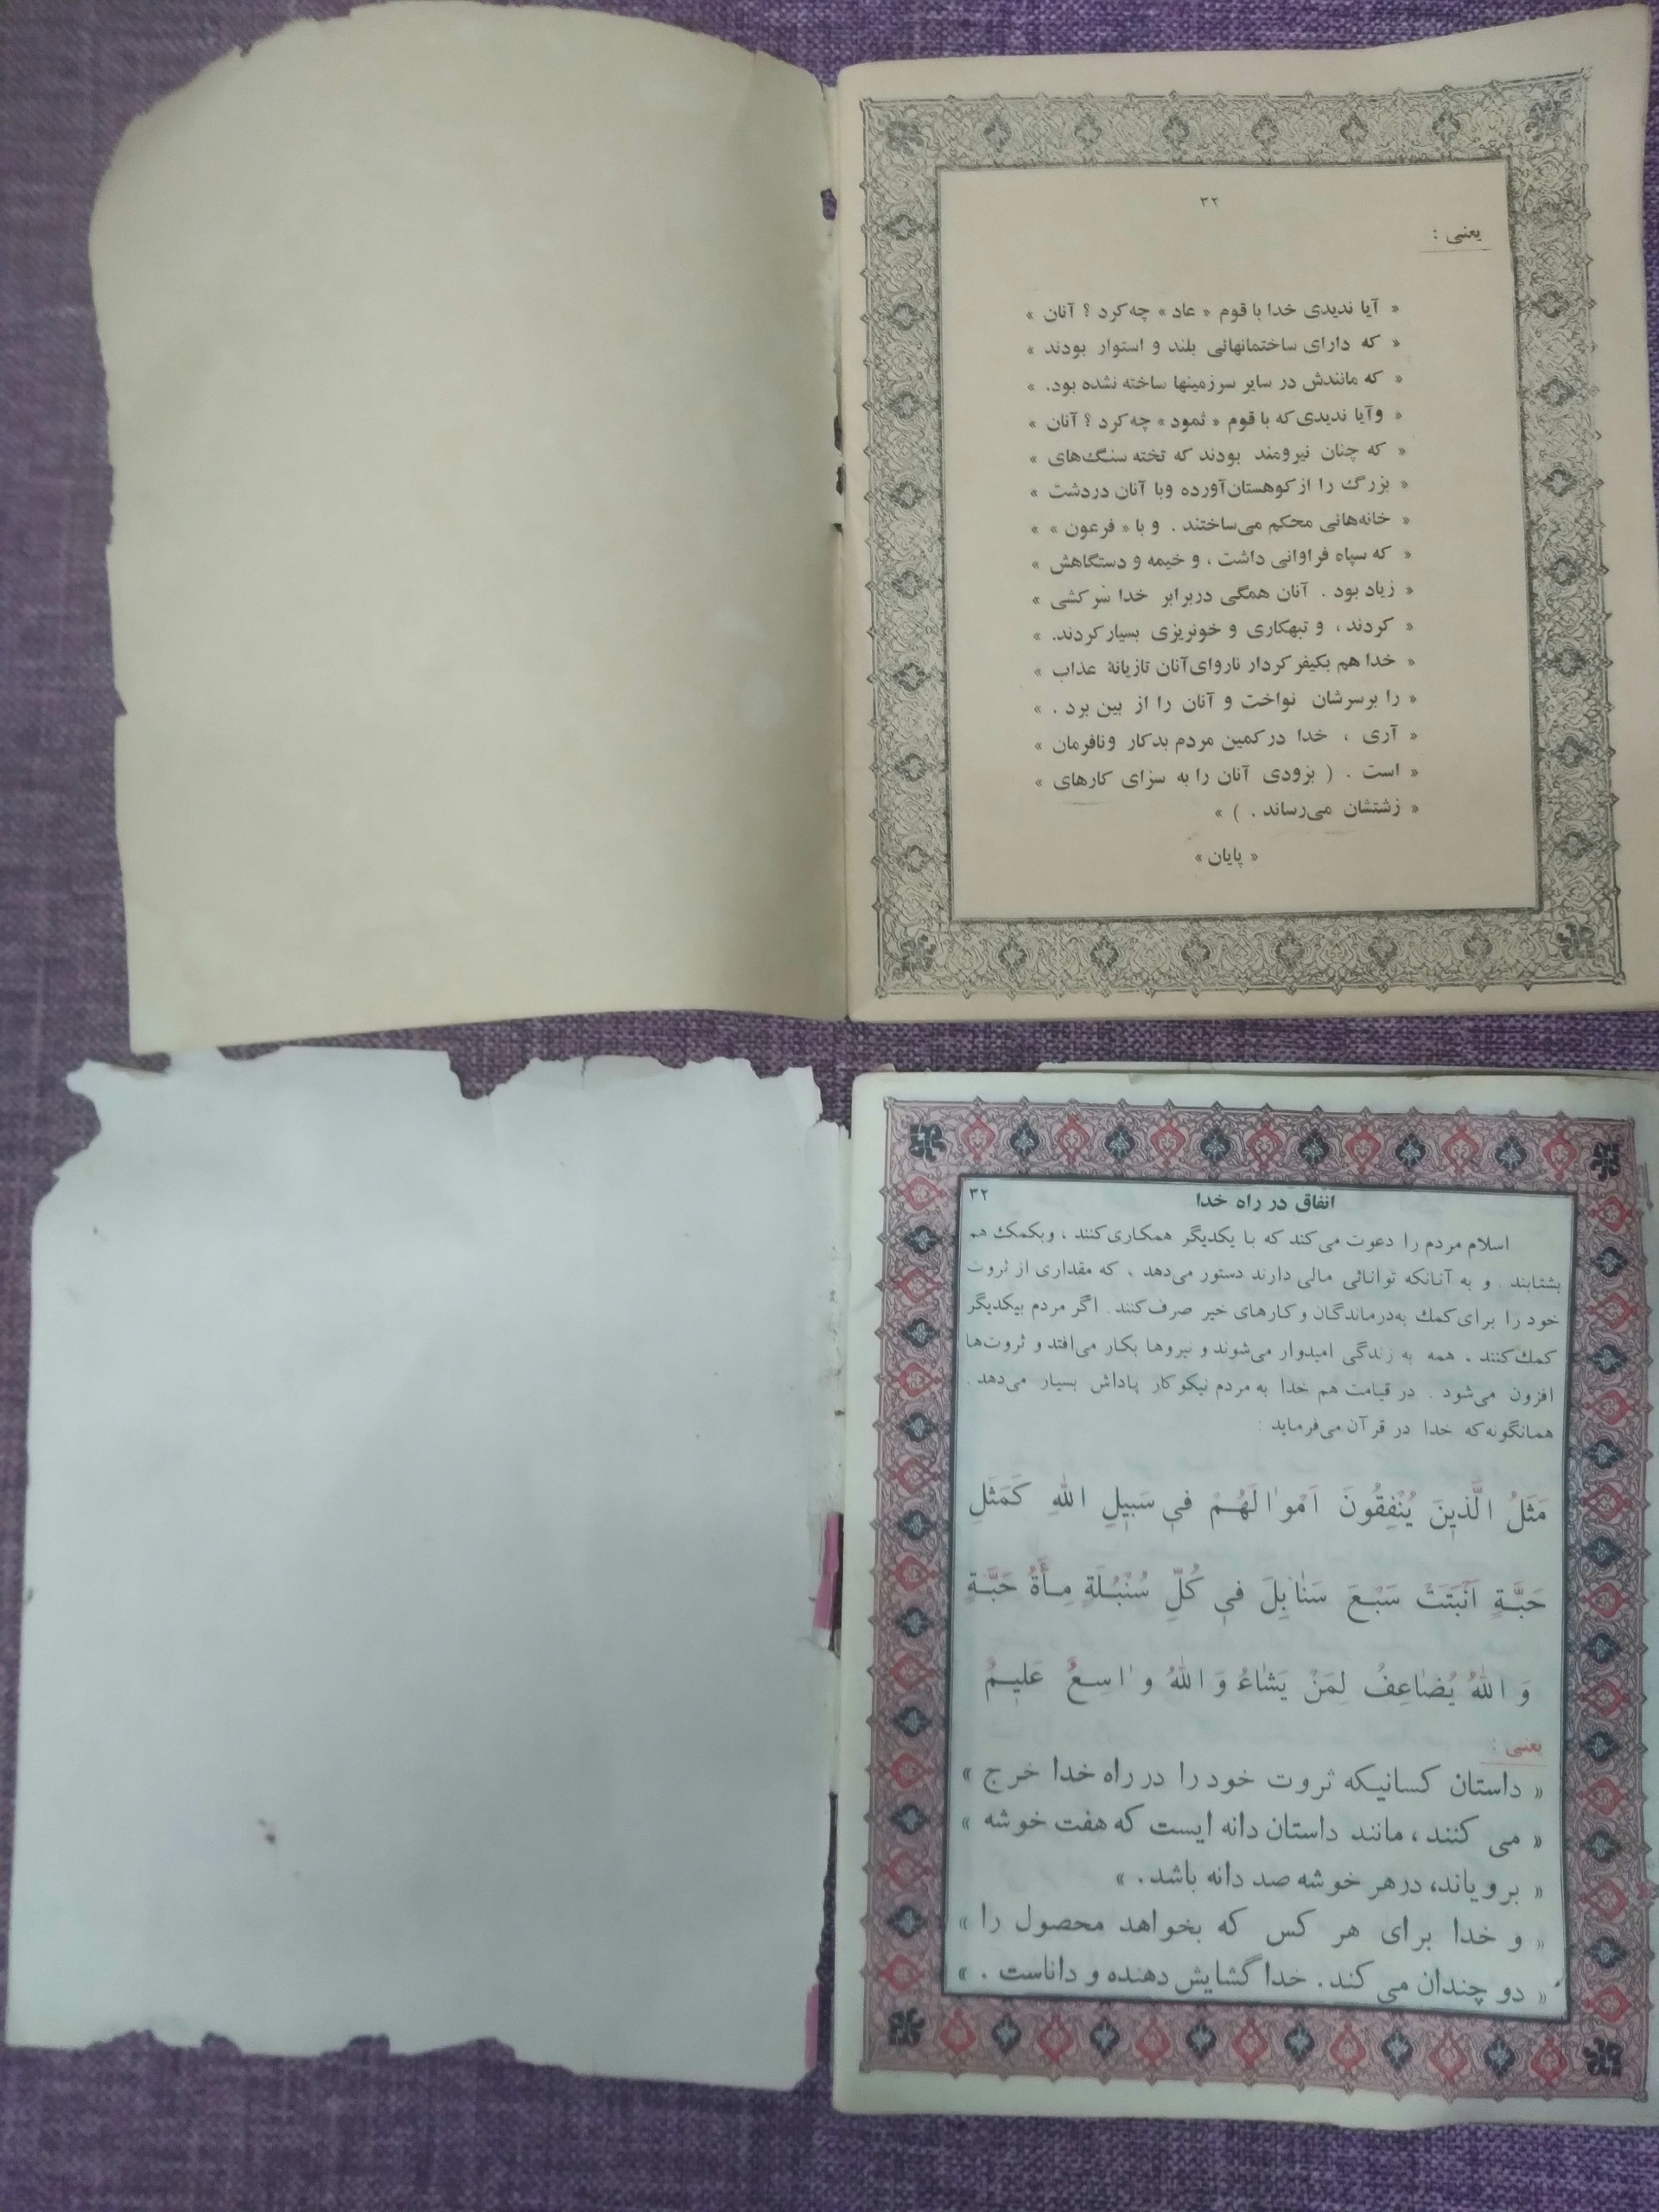 ۳۲
یعنی :
« آیا ندیدی خدا با قوم « عاد » چه کرد ؟ آنان »
« که دارای ساختمانهائی بلند و استوار بودند »
« که مانندش در سایر سرزمینها ساخته نشده بود. »
« وآیا ندیدی که با قوم « ثمود » چه کرد ؟ آنان »
« که چنان نیرومند بودند که تخته سنگ‌های »
« بزرگ را از کوهستان آورده وبا آنان دردشت »
« خانه‌هائی محکم می‌ساختند . و با « فرعون » »
« که سپاه فراوانی داشت ، و خیمه و دستگاهش »
« زیاد بود . آنان همگی دربرابر خدا سرکشی »
« کردند ، و تبهکاری و خونریزی بسیار کردند. »
« خدا هم بکیفر کردار ناروای آنان تازیانهٔ عذاب »
« را برسرشان نواخت و آنان را از بین برد . »
« آری ، خدا در کمین مردم بدکار ونافرمان »
« است . ( بزودی آنان را به سزای کارهای »
« زشتشان می‌رساند . ) »
« پایان »
انفاق در راه خدا ۳۲
اسلام مردم را دعوت می‌کند که با یکدیگر همکاری کنند ، وبکمک هم
بشتابند . و به آنانکه توانائی مالی دارند دستور می‌دهد ، که مقداری از ثروت
خود را برای کمك به‌درماندگان و کارهای خیر صرف کنند . اگر مردم بیکدیگر
کمك کنند ، همه به زندگی امیدوار می‌شوند و نیروها بکار می‌افتد و ثروت‌ها
افزون می‌شود . در قیامت هم خدا به مردم نیکو کار پاداش بسیار می‌دهد .
همانگونه که خدا در قرآن می‌فرماید :
مَثَلُ الَّذينَ يُنْفِقُونَ اَمْوٰالَهُمْ في سَبيلِ اللهِ كَمَثَلِ
حَبَّةٍ اَنْبَتَتْ سَبْعَ سَنٰابِلَ في كُلِّ سُنْبُلَةٍ مِأَةُ حَبَّةٍ
وَ اللهُ يُضٰاعِفُ لِمَنْ يَشٰاءُ وَ اللهُ وٰاسِعٌ عَليمٌ
یعنی :
« داستان کسانیکه ثروت خود را در راه خدا خرج »
« می کنند ، مانند داستان دانه ایست که هفت خوشه »
« برویاند، درهر خوشه صد دانه باشد . »
« و خدا برای هر کس که بخواهد محصول را »
« دو چندان می کند . خدا گشایش دهنده و داناست . »